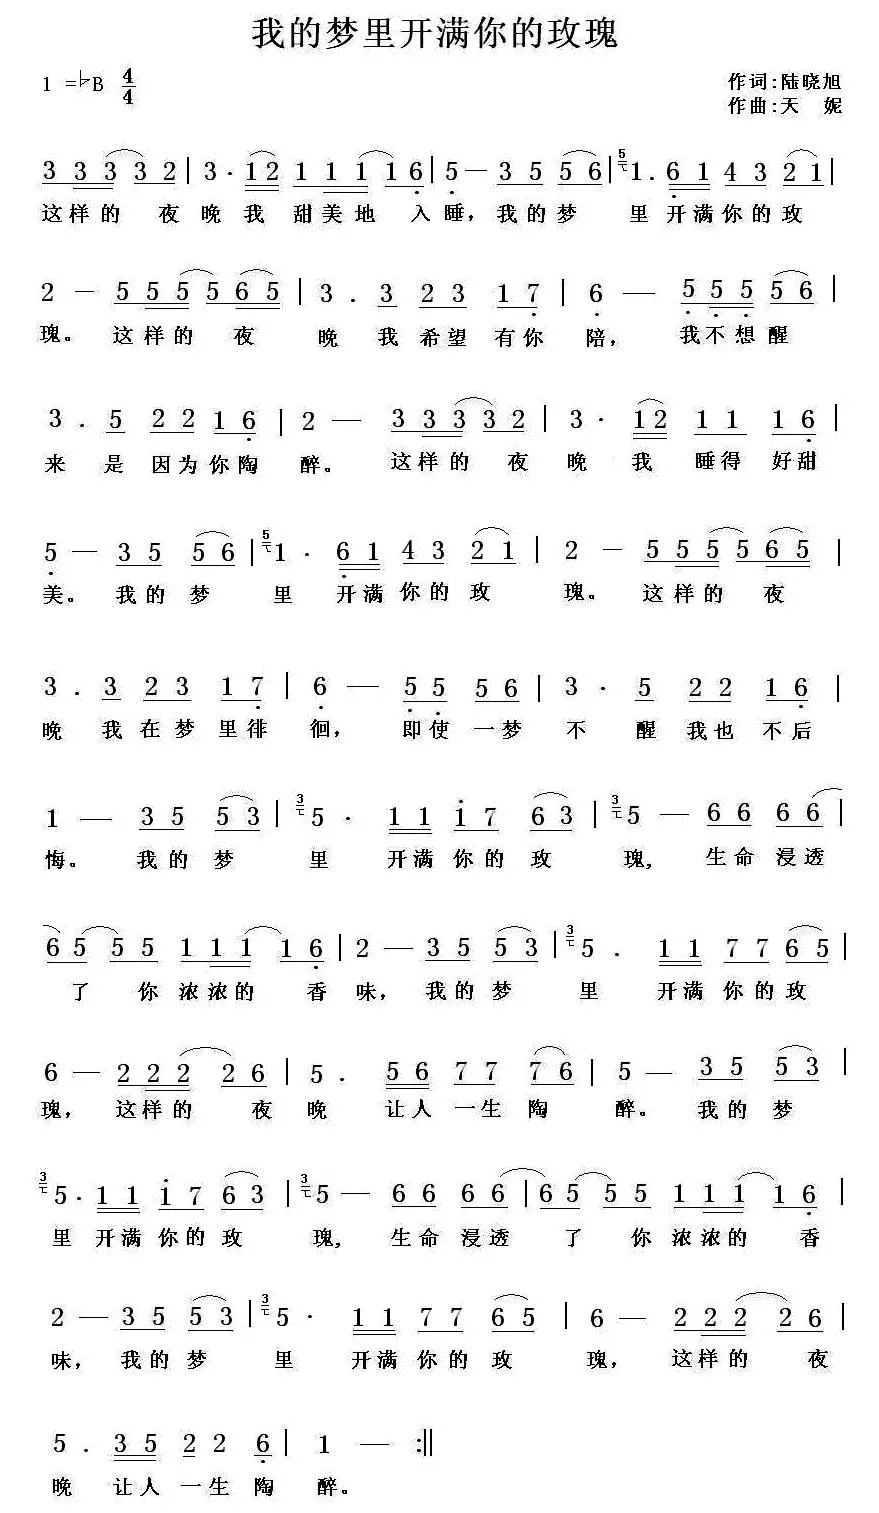 我的梦里开满你的玫瑰
1 =♭B 4/4
作词:陆晓旭
作曲:天 妮
3 3 3 3 2 | 3 · 1 2 1 1 1 1 6 | 5 — 3 5 5 6 | 5 1 . 6 1 4 3 2 1 |
这样的 夜晚我 甜美地 入睡,我的梦 里开满你的玫
2 — 5 5 5 5 6 5 | 3 . 3 2 3 1 7 | 6 — 5 5 5 5 6 |
瑰。这样的 夜 晚 我 希望有你 陪, 我不想醒
3 . 5 2 2 1 6 | 2 — 3 3 3 3 2 | 3 · 1 2 1 1 1 6 |
来 是 因为你陶 醉。 这样的 夜 晚 我 睡得 好甜
5 — 3 5 5 6 | 5 1 · 6 1 4 3 2 1 | 2 — 5 5 5 5 6 5 |
美。 我的梦 里 开满你的玫 瑰。 这样的 夜
3 . 3 2 3 1 7 | 6 — 5 5 5 6 | 3 · 5 2 2 1 6 |
晚 我 在梦里徘 徊, 即使一梦 不 醒我也不后
1 — 3 5 5 3 | 3 5 · 1 1 1 7 6 3 | 3 5 — 6 6 6 6 |
悔。 我的梦 里 开满你的玫 瑰, 生命浸透
6 5 5 5 1 1 1 1 6 | 2 — 3 5 5 3 | 3 5 . 1 1 7 7 6 5 |
了 你浓浓的 香 味, 我的梦 里 开满你的玫
6 — 2 2 2 2 6 | 5 . 5 6 7 7 7 6 | 5 — 3 5 5 3 |
瑰, 这样的 夜 晚 让人一生陶 醉。 我的梦
3 5 · 1 1 1 7 6 3 | 3 5 — 6 6 6 6 | 6 5 5 5 1 1 1 1 6 |
里 开满你的玫 瑰, 生命浸透 了 你浓浓的 香
2 — 3 5 5 3 | 3 5 · 1 1 7 7 6 5 | 6 — 2 2 2 2 6 |
味, 我的梦 里 开满你的玫 瑰, 这样的 夜
5 . 3 5 2 2 6 | 1 — :||
晚 让人一生陶 醉。